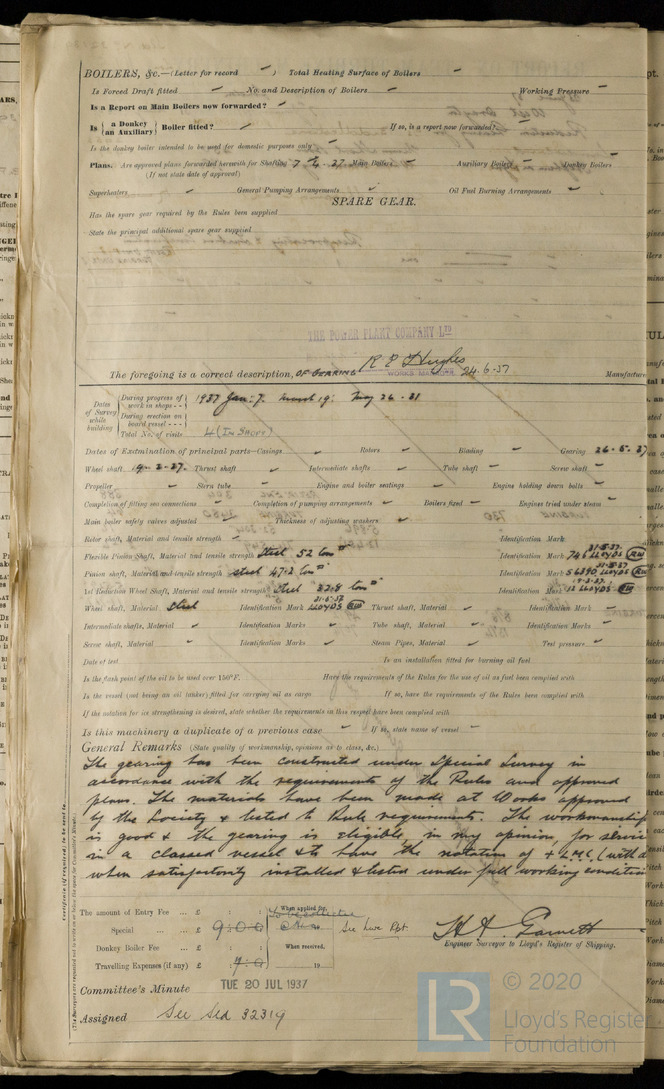 BOILERS, &c.—(Letter for record ) Total Heating Surface of Boilers
Is Forced Draft fitted No. and Description of Boilers Working Pressure
Is a Report on Main Boilers now forwarded?
Is { a Donkey / an Auxiliary } Boiler fitted? If so, is a report now forwarded?
Is the donkey boiler intended to be used for domestic purposes only
Plans. Are approved plans forwarded herewith for Shafting 7-6-37 Main Boilers Auxiliary Boilers Donkey Boilers
(If not state date of approval)
Superheaters General Pumping Arrangements Oil Fuel Burning Arrangements
SPARE GEAR.
Has the spare gear required by the Rules been supplied
State the principal additional spare gear supplied
THE POWER PLANT COMPANY LTD
The foregoing is a correct description, OF GEARING R E Hughes 24.6.37 Manufactur
WORKS MANAGER
Dates of Survey while building
During progress of work in shops - - 1937 Jan: 7. March 19: May 26 - 31
During erection on board vessel - - -
Total No. of visits 4 (In Shops)
Dates of Examination of principal parts—Casings Rotors Blading Gearing 26-5-37
Wheel shaft 19-2-37. Thrust shaft Intermediate shafts Tube shaft Screw shaft
Propeller Stern tube Engine and boiler seatings Engine holding down bolts
Completion of fitting sea connections Completion of pumping arrangements Boilers fixed Engines tried under steam
Main boiler safety valves adjusted Thickness of adjusting washers
Rotor shaft, Material and tensile strength Identification Mark
Flexible Pinion Shaft, Material and tensile strength Steel 52 tons Identification Mark 746 LLOYDS 31-5-37. RW
Pinion shaft, Material and tensile strength steel 47.2 tons Identification Mark 56390 LLOYDS 31-5-37 RW
1st Reduction Wheel Shaft, Material and tensile strength Steel 32.8 tons Identification Mark 12 LLOYDS RW
Wheel shaft, Material Steel Identification Mark LLOYDS 31-5-37 RW Thrust shaft, Material Identification Mark
Intermediate shafts, Material Identification Marks Tube shaft, Material Identification Marks
Screw shaft, Material Identification Marks Steam Pipes, Material Test pressure
Date of test Is an installation fitted for burning oil fuel
Is the flash point of the oil to be used over 150°F. Have the requirements of the Rules for the use of oil as fuel been complied with
Is the vessel (not being an oil tanker) fitted for carrying oil as cargo If so, have the requirements of the Rules been complied with
If the notation for ice strengthening is desired, state whether the requirements in this respect have been complied with
Is this machinery a duplicate of a previous case If so, state name of vessel
General Remarks (State quality of workmanship, opinions as to class, &c.)
The gearing has been constructed under Special Survey in
accordance with the requirements of the Rules and approved
plans. The materials have been made at Works approved
by the Society & tested to Rule requirements. The workmanship
is good & the gearing is eligible, in my opinion, for service
in a classed vessel & to have the notation of + L.M.C. (with d
when satisfactorily installed & tested under full working condition
The amount of Entry Fee ... £ : : When applied for,
Special ... ... £ 9:0:0 See Live Rpt.
Donkey Boiler Fee ... £ : : When received,
Travelling Expenses (if any) £ 7:0 19
H. A. Garnett
Engineer Surveyor to Lloyd's Register of Shipping.
Committee's Minute TUE 20 JUL 1937
Assigned See Sld 32319
Certificate (if required) to be sent to
(The Surveyors are requested not to write on or below the space for Committee's Minute.)
LR © 2020
Lloyd's Register
Foundation